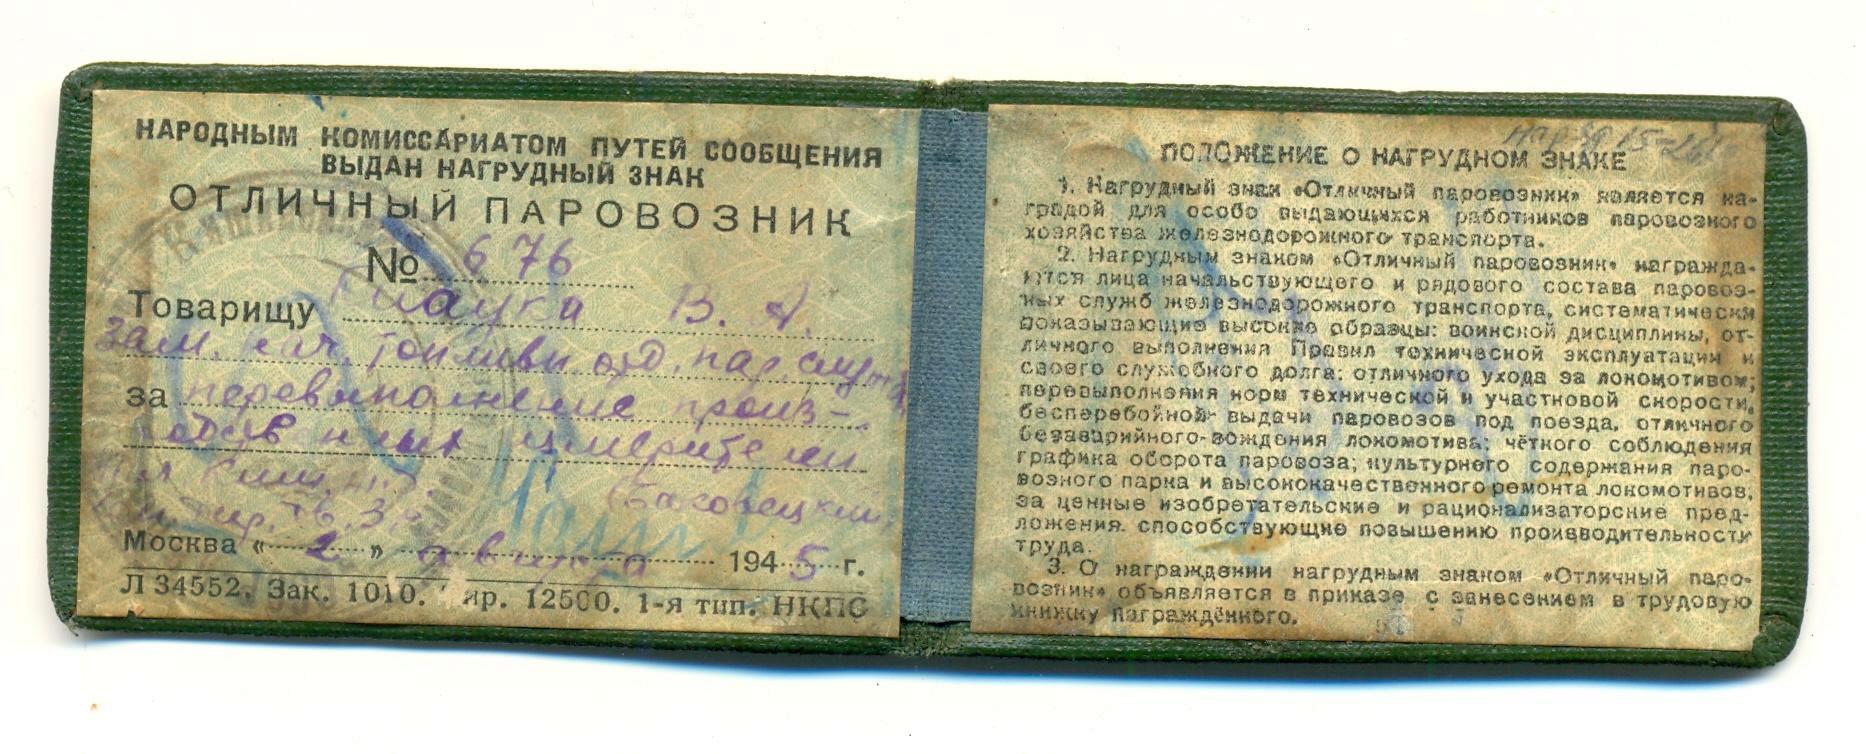 НАРОДНЫМ КОМИССАРИАТОМ ПУТЕЙ СООБЩЕНИЯ
ВЫДАН НАГРУДНЫЙ ЗНАК
ОТЛИЧНЫЙ ПАРОВОЗНИК
№ 676
Товарищу В. А.
зам. нач. топливн. отд. пар. служ
за перевыполнение произ-
водственных измерителей
Москва « 2 » августа 1945 г.
Л 34552. Зак. 1010. Тир. 12500. 1-я тип. НКПС
ПОЛОЖЕНИЕ О НАГРУДНОМ ЗНАКЕ
1. Нагрудный знак «Отличный паровозник» является на-
градой для особо выдающихся работников паровозного
хозяйства железнодорожного транспорта.
2. Нагрудным знаком «Отличный паровозник» награжда-
ются лица начальствующего и рядового состава паровоз-
ных служб железнодорожного транспорта, систематически
показывающие высокие образцы: воинской дисциплины, от-
личного выполнения Правил технической эксплуатации и
своего служебного долга; отличного ухода за локомотивом;
перевыполнения норм технической и участковой скорости,
бесперебойной выдачи паровозов под поезда, отличного
безаварийного вождения локомотива; чёткого соблюдения
графика оборота паровоза; культурного содержания паро-
возного парка и высококачественного ремонта локомотивов;
за ценные изобретательские и рационализаторские пред-
ложения. способствующие повышению производительности
труда.
3. О награждении нагрудным знаком «Отличный паро-
возник» объявляется в приказе с занесением в трудовую
книжку награждённого.